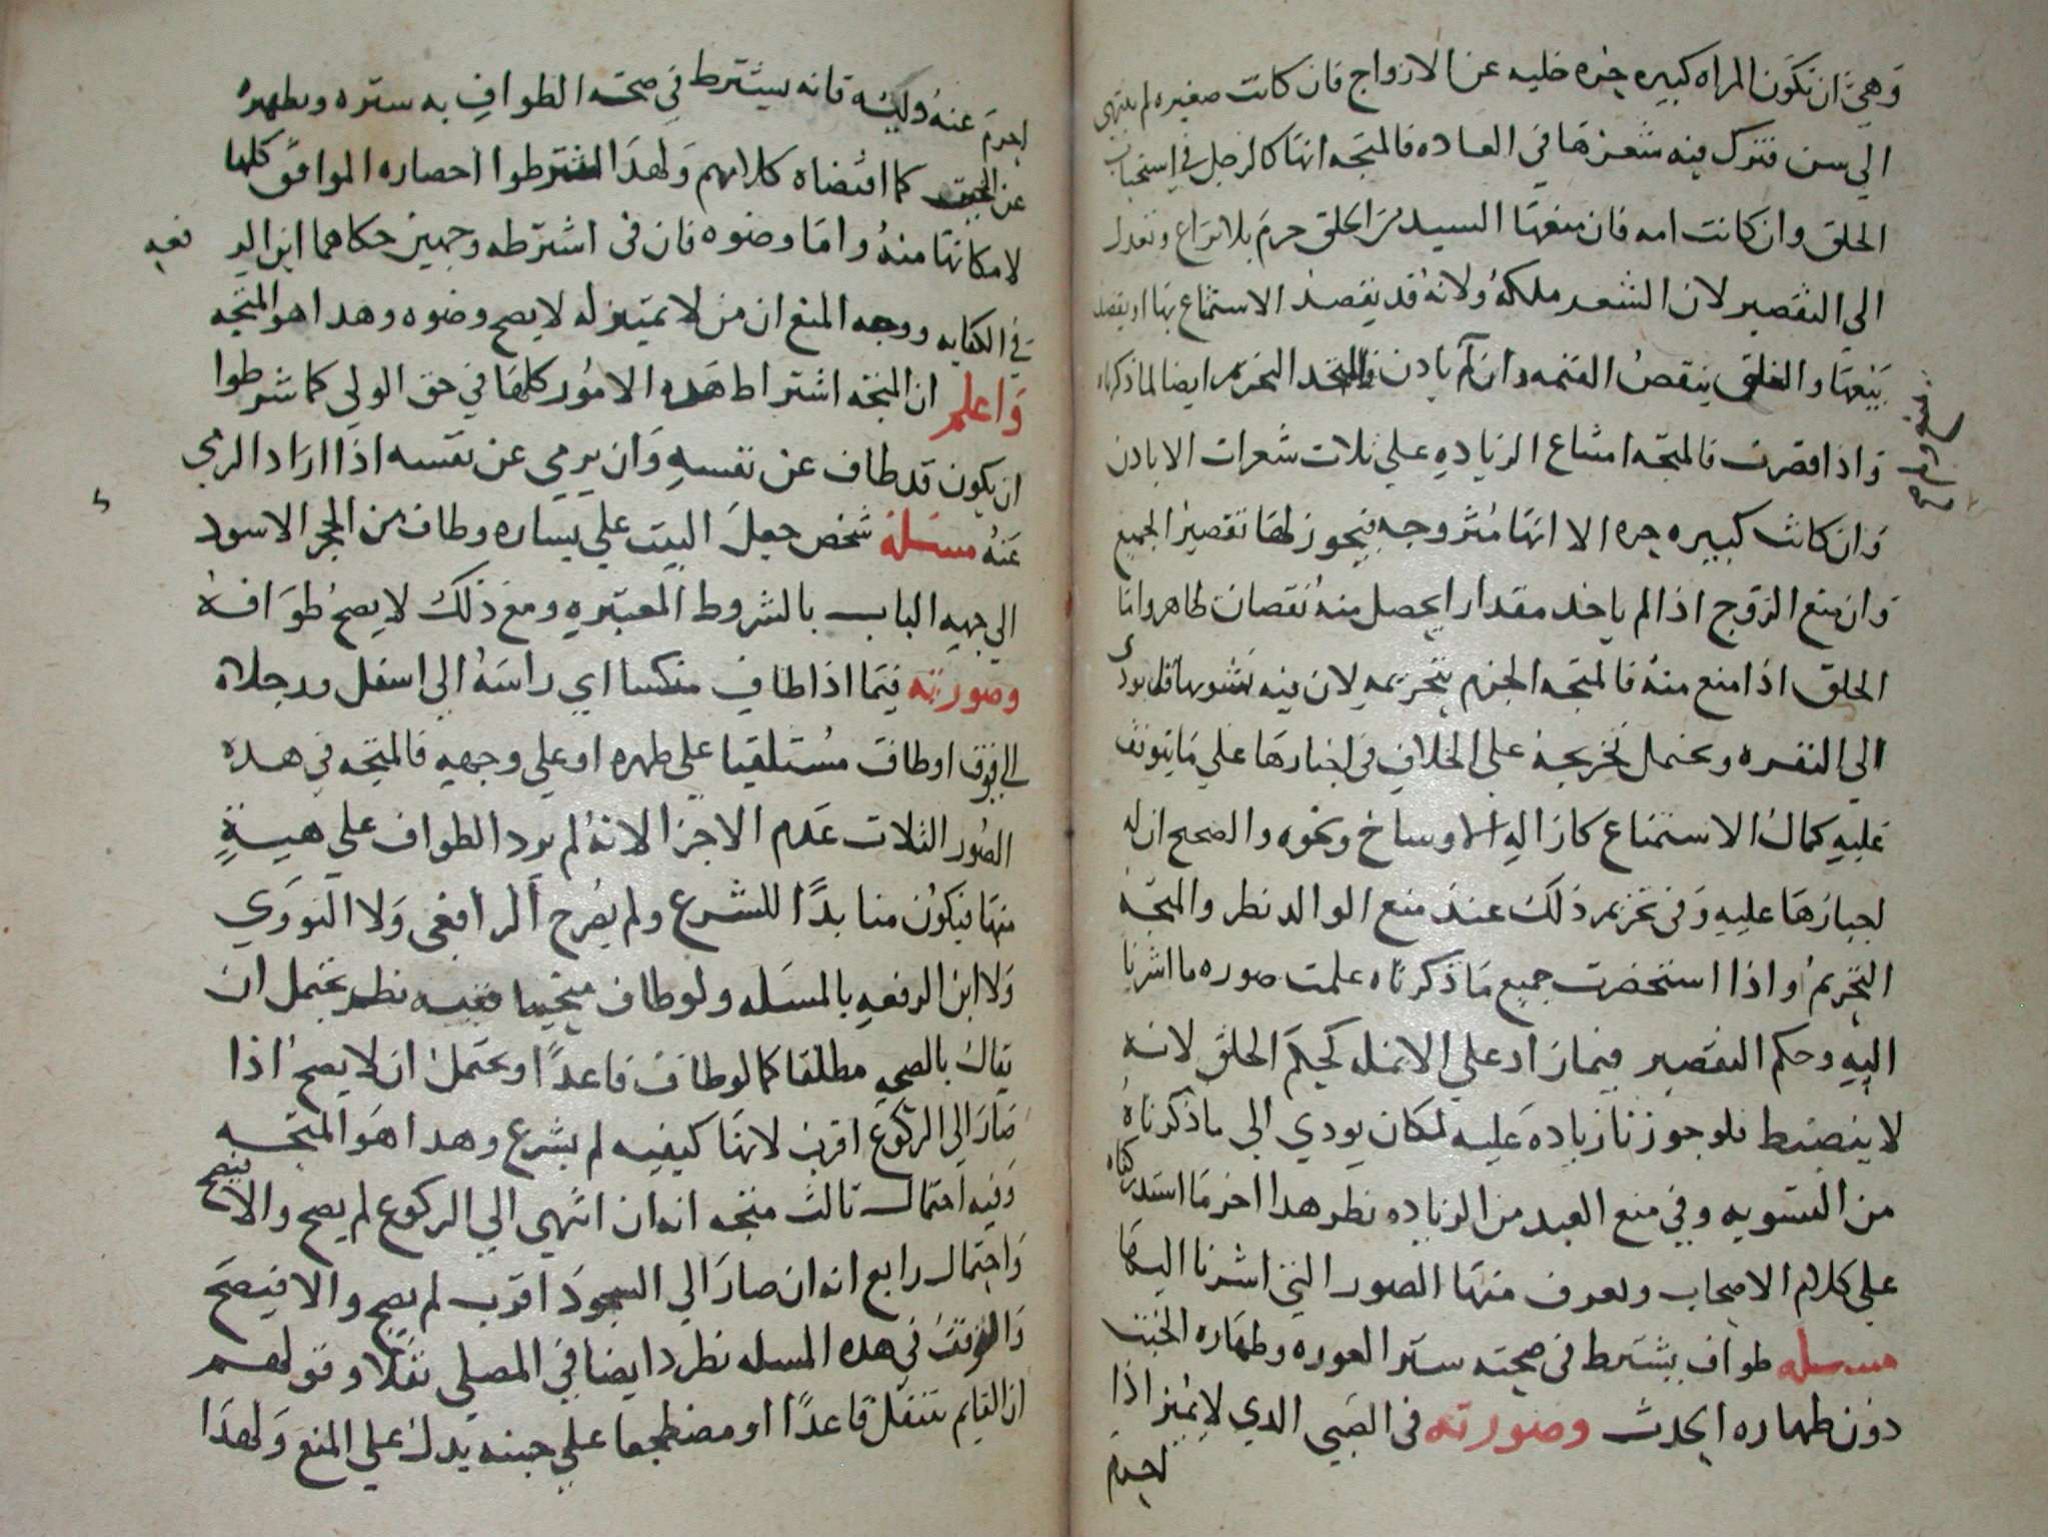 وهي ان تكون المراه كبيره حره خليه عن الازواج فان كانت صغيره لم تنتهي
الي سن تترك فيه شعرها في العاده فالمتجه انها كالرجل في استحباب
الحلق وان كانت امه فان منعها السيد من الحلق حرم بلا نزاع وتعدل
الي التقصير لان الشعر ملكه ولانه قد يقصد الاستمتاع بها او يقصد
بيعها والحلق ينقص القيمه وان لم يادن فالمتجه التحريم ايضا لما ذكرناه
واذا قصرت فالمتجه امتناع الزياده علي ثلاث شعرات الا باذن
وان كانت كبيره حره الا انها متزوجه فيجوز لها تقصير الجميع
وان منع الزوج اذا لم ياخد مقدارا يحصل منه نقصان ظاهر واما
الحلق اذا منع منه فالمتجه الجزم بتحريمه لان فيه تشويها قد يودي
الي النفره ويحتمل تخريجه علي الخلاف في اجبارها علي ما يتوقف
عليه كمال الاستمتاع كازاله الاوساخ ونحوه والصحيح ان له
اجبارها عليه وفي تحريم ذلك عند منع الوالد نظر والمتجه
التحريم واذا استحضرت جميع ما ذكرناه علمت صوره ما اشرنا
اليه وحكم التقصير فيما زاد علي الانمله كحكم الحلق لانه
لا ينضبط فلو جوزنا زياده عليه لكان يودي الي ما ذكرناه
من التسويه وفي منع العبد من الزياده نظر هدا اخر ما استدركناه
علي كلام الاصحاب ويعرف منها الصور التي اشرنا اليها
مسله طواف يشترط في صحته ستر العوره وطهاره الخبث
دون طهاره الحدث وصورته في الصبي الدي لا يميز اذا
احرم
احرم عنه وليه فانه يشترط في صحه الطواف به ستره وطهره
عن الخبث كما اقتضاه كلامهم ولهدا اشترطوا احضاره المواقف كلها
لامكانها منه واما وضوه فان في اشترطه وجهين حكاهما ابن الر فعه
في الكفايه ووجه المنع ان من لا تمييز له لا يصح وضوه وهدا هو المتجه
واعلم ان المتجه اشتراط هده الامور كلها في حق الولي كما شرطوا
ان يكون قد طاف عن نفسه وان يرمي عن نفسه اذا اراد الرمي
عنه مسئلة شخص جعل البيت علي يساره وطاف من الحجر الاسود
الي جهه الباب بالشروط المعتبره ومع ذلك لا يصح طوافه
وصورته فيما اذا طاف منكسا اي راسه الي اسفل ورجلاه
الي فوق او طاف مستلقيا علي ظهره او علي وجهه فالمتجه في هده
الصور الثلاث عدم الاجزا لانه لم يرد الطواف علي هيئة
منها فيكون منابدا للشرع ولم يصرح الرافعي ولا النووي
ولا ابن الرفعه بالمسله ولو طاف منحنيا ففيه نظر يحتمل ان
يقال بالصحه مطلقا كما لو طاف قاعدا ويحتمل ان لا يصح اذا
صار الي الركوع اقرب لانها كيفيه لم يشرع وهدا هو المتجه
وفيه احتمال ثالث متجه انه ان انتهي الي الركوع لم يصح والا فيصح
واحتمال رابع انه ان صار الي السجود اقرب لم يصح والا فيصح
والتوقف في هده المسله نظرد ايضا في المصلي نفلا وقولهم
ان القايم يتنفل قاعدا او مضطجعا علي جنبه يدل علي المنع ولهدا